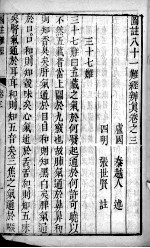 圖註八十一難經辨真卷之三
盧國 秦越人 述
四明 張世賢 註
三十七難
三十七難曰五藏之氣於何發起通於何許可以
曉以不然五藏者當上關於九竅也故肺氣通於鼻鼻和
則知香臭矣肝氣通於目目和則知黑白矣脾氣通
於口口和則知穀味矣心氣通於舌舌和則知五味
矣腎氣通於耳耳和則知五音矣三焦之氣通於喉